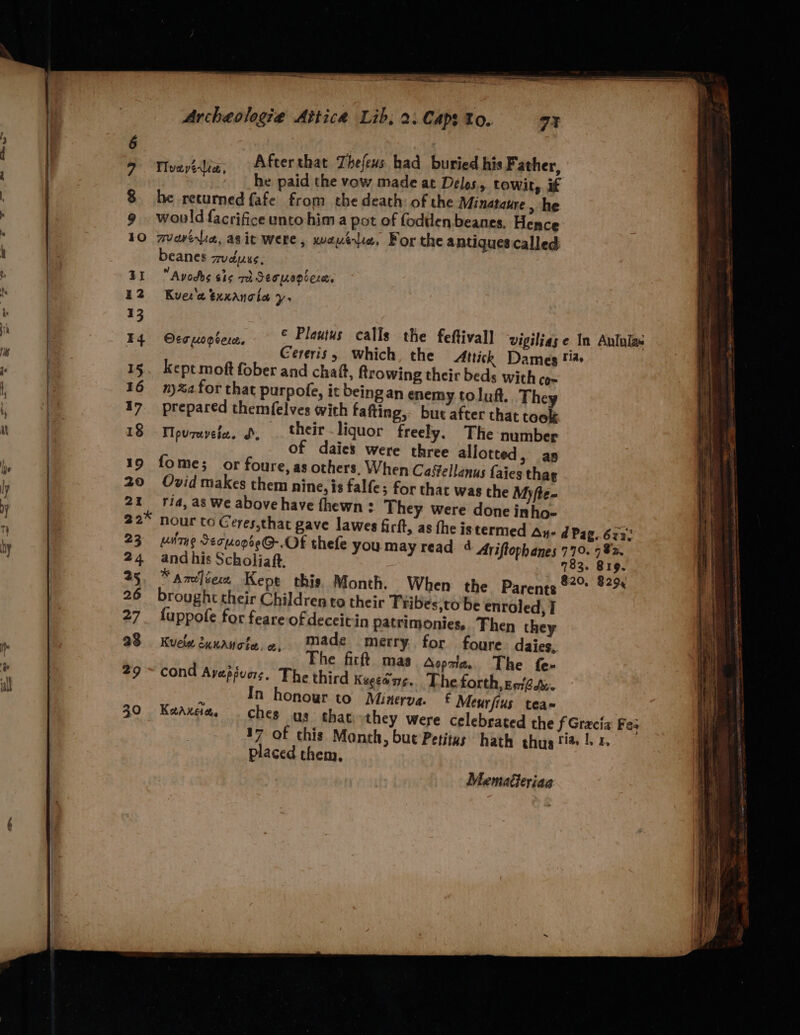 Archæologiæ Atticæ Lib. 2. Cap: 10. 71
6
7 Πυανέψια, After that Theseus had buried his Father,
he paid the vow made at Delos, towit, if
8 he returned safe from the death of the Minataure, he
9 would sacrifice unto him a pot of sodden beanes. Hence
10 πυανέψια, as it were, κυαμέψια. For the antiques called
beanes πυάμους.
11 Ἄνοδος εἰς τὰ Θεσμοφόρεια.
12 Κυεία ἐκκλησία γ.
13
14 Θεσμοφόρεια. c Plautus calls the festivall vigilias e In Aulula-
Cereris, which the Attick Dames ria.
15 kept most sober and chast, strowing their beds with co-
16 nyza for that purpose, it being an enemy to lust. They
17 prepared themselves with fasting, but after that took
18 Πρυτανεία. δ. their liquor freely. The number
of daies were three allotted, as
19 some; or foure, as others. When Castellanus saies that
20 Ovid makes them nine, is false; for that was the Myste-
21 ria, as we above have shewn: They were done in ho-
22* nour to Ceres, that gave lawes first, as she is termed Δη- d Pag. 622.
23 μήτηρ Θεσμοφόρος. Of these you may read d Aristophanes 770. 782.
24 and his Scholiast. 783. 819.
25 *Ἀπατούρια Kept this Month. When the Parents 820. 829.
26 brought their Children to their Tribes, to be enroled, I
27 suppose for feare of deceit in patrimonies. Then they
28 Κυεία ἐκκλησία. α. made merry for foure daies.
The first mas Δορπία. The se-
29 cond Ἀναῤῥυσις. The third Κυρεῶτις. The forth, Ἐπίβδα.
In honour to Minerva. f Meursius tea-
30 Χαλκεῖα. ches us that they were celebrated the f Græcia Fe-
17 of this Month, but Petitus hath thus ria, l. 1.
placed them.
Memacteriaa